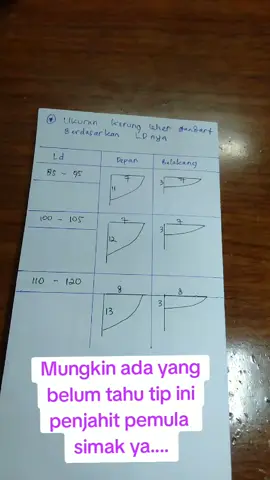 Ukuran Kerung leher
Berdasarkan LDnya
Ld Depan Belakang
85 - 95 7 11 3 7
100 - 105 7 12 3 7
110 - 120 8 13 3 8
Mungkin ada yang
belum tahu tip ini
penjahit pemula
simak ya....